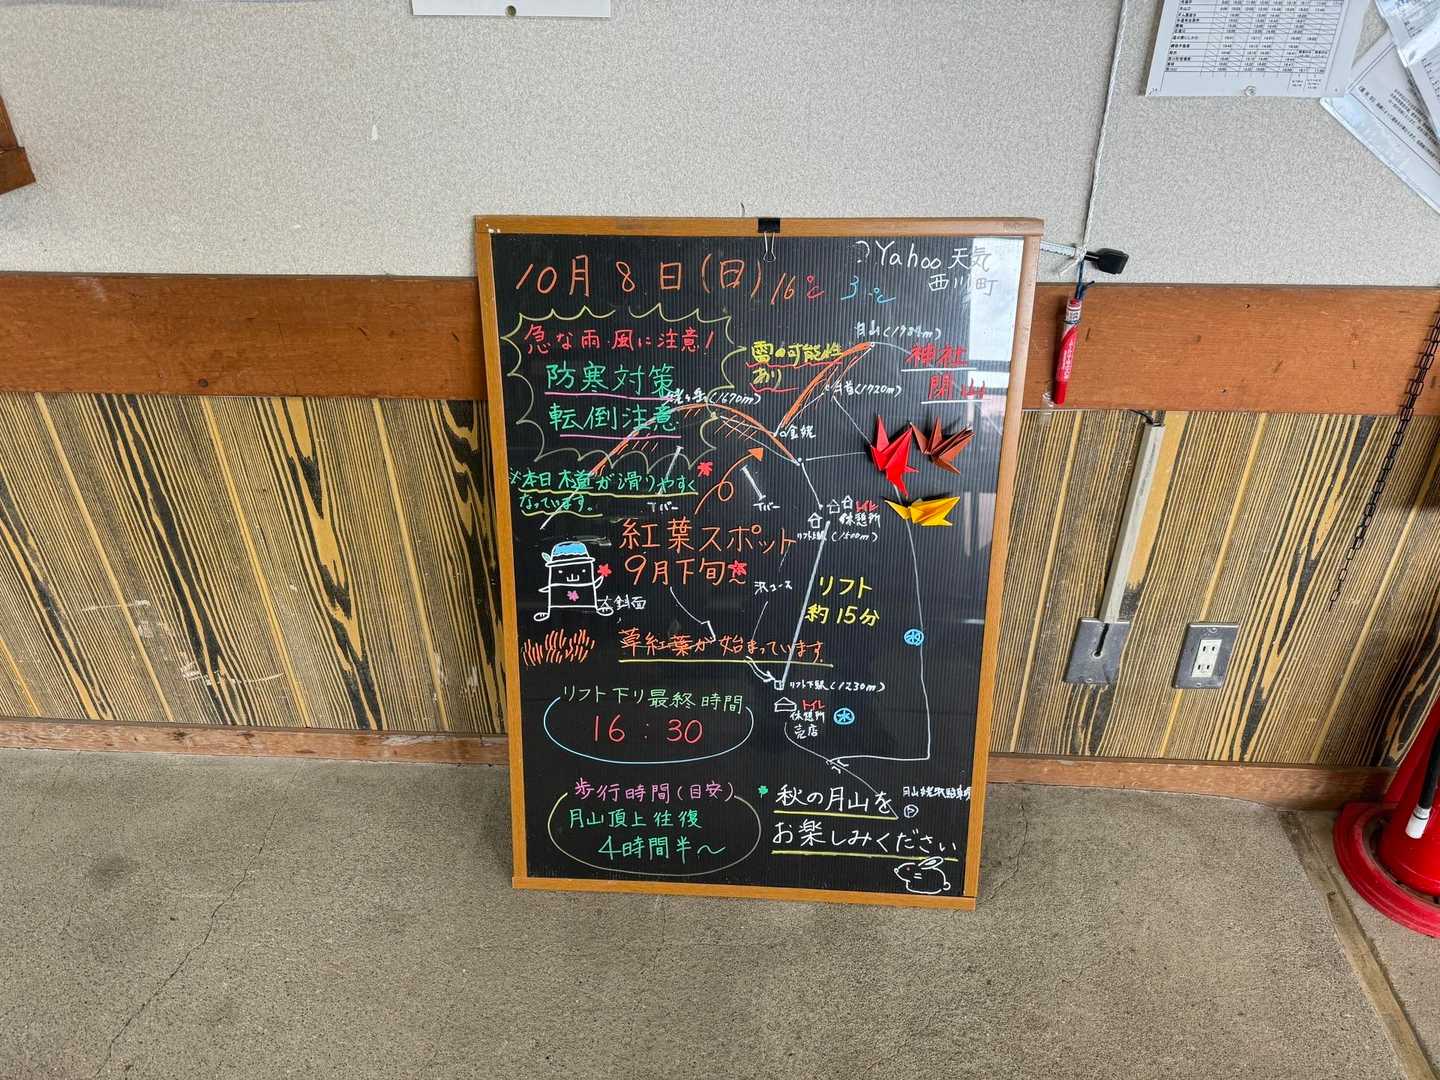 10月8日(日) 16℃ 3℃
Yahoo天気
西川町
急な雨・風に注意!
防寒対策
転倒注意
雷の可能性
あり
月山(1984m)
神社
閉山
姥ヶ岳(1670m)
牛首(1720m)
金姥
※本日木道が滑りやすく
なっています。
Tバー
Tバー
トイレ
休憩所
リフト上駅(1500m)
紅葉スポット
9月下旬〜
大斜面
沢コース
リフト
約15分
草紅葉が始まっています。
水
リフト下駅(1230m)
トイレ
休憩所
売店
水
リフト下り最終時間
16:30
歩行時間(目安)
月山頂上往復
4時間半〜
秋の月山を
お楽しみください
P